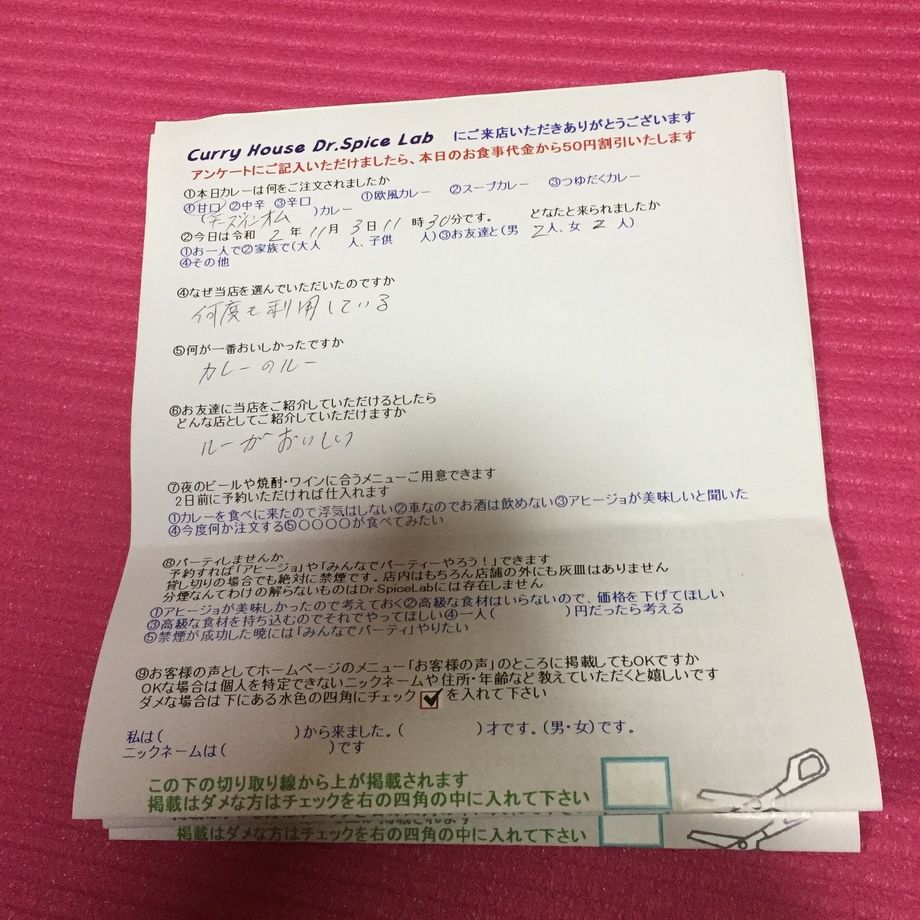 Curry House Dr.Spice Lab にご来店いただきありがとうございます
アンケートにご記入いただけましたら、本日のお食事代金から50円割引いたします
①本日カレーは何をご注文されましたか
①甘口 ②中辛 ③辛口 ①欧風カレー ②スープカレー ③つゆだくカレー
(チーズインオム )カレー
②今日は令和 2 年 11 月 3 日 11 時 30 分です。 どなたと来られましたか
①お一人で②家族で(大人 人、子供 人)③お友達と(男 2 人、女 2 人)
④その他
④なぜ当店を選んでいただいたのですか
何度も利用している
⑤何が一番おいしかったですか
カレーのルー
⑥お友達に当店をご紹介していただけるとしたら
どんな店としてご紹介していただけますか
ルーがおいしい
⑦夜のビールや焼酎・ワインに合うメニューご用意できます
2日前に予約いただければ仕入れます
①カレーを食べに来たので浮気はしない②車なのでお酒は飲めない③アヒージョが美味しいと聞いた
④今度何か注文する⑤○○○○が食べてみたい
⑧パーティしませんか
予約すれば「アヒージョ」や「みんなでパーティーやろう！」できます
貸し切りの場合でも絶対に禁煙です。店内はもちろん店舗の外にも灰皿はありません
分煙なんてわけの解らないものはDr.SpiceLabには存在しません
①アヒージョが美味しかったので考えておく②高級な食材はいらないので、価格を下げてほしい
③高級な食材を持ち込むのでそれでやってほしい④一人( )円だったら考える
⑤禁煙が成功した暁には「みんなでパーティ」やりたい
⑨お客様の声としてホームページのメニュー「お客様の声」のところに掲載してもOKですか
OKな場合は個人を特定できないニックネームや住所・年齢など教えていただくと嬉しいです
ダメな場合は下にある水色の四角にチェック ☑ を入れて下さい
私は( )から来ました。( )才です。(男・女)です。
ニックネームは( )です
この下の切り取り線から上が掲載されます
掲載はダメな方はチェックを右の四角の中に入れて下さい
掲載はダメな方はチェックを右の四角の中に入れて下さい